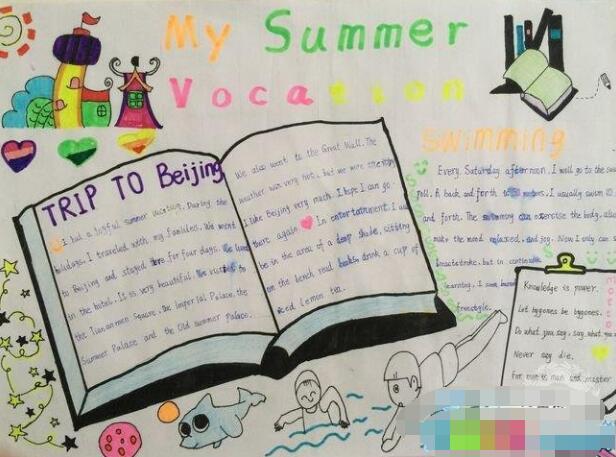 My Summer
Vocation
TRIP TO Beijing
I had a joyful summer vacation. During the
holidays, I traveled with my families. We went
to Beijing and stayed there for four days. We lived
in the hotel. It is very beautiful. We visited to
the Tian'anmen Square, the Imperial Palace, the
Summer Palace and the Old Summer Palace.
We also went to the Great Wall. The
weather was very hot, but we were
I like Beijing very much. I hope I can go
there again. In entertainment, I
be in the area of a deep shade, sitting
on the bench read books, drink a cup of
iced Lemon tea.
Swimming
Every Saturday afternoon, I will go to the
pool. A back and forth to 50 metres. I usually swim 20
and forth. The swimming can exercise the body, also
make the mood relaxed, and joy. Now I only can
breaststroke, but in
learning, I
freestyle.
Knowledge is power.
Let bygones be bygones.
Do what you say, say what
Never say die.
For man is man and master